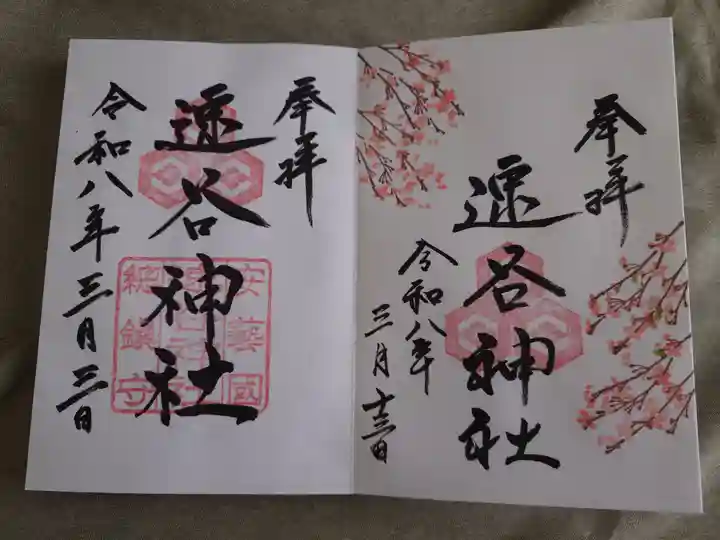 奉拝
速谷神社
安藝國
速谷神社
総鎮守
令和八年三月三日
奉拝
速谷神社
令和八年
三月十三日